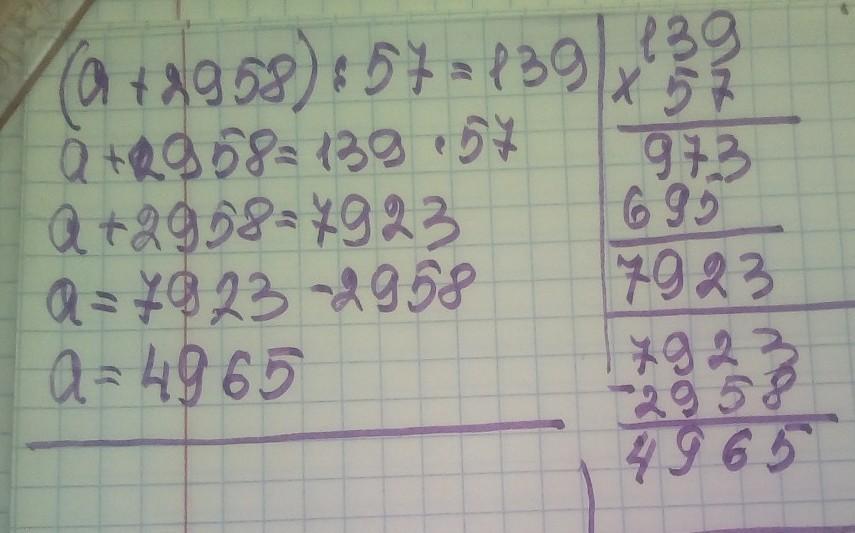 (a + 2958) : 57 = 139
a + 2958 = 139 · 57
a + 2958 = 7923
a = 7923 - 2958
a = 4965
139
× 57
973
695
7923
7923
-2958
4965